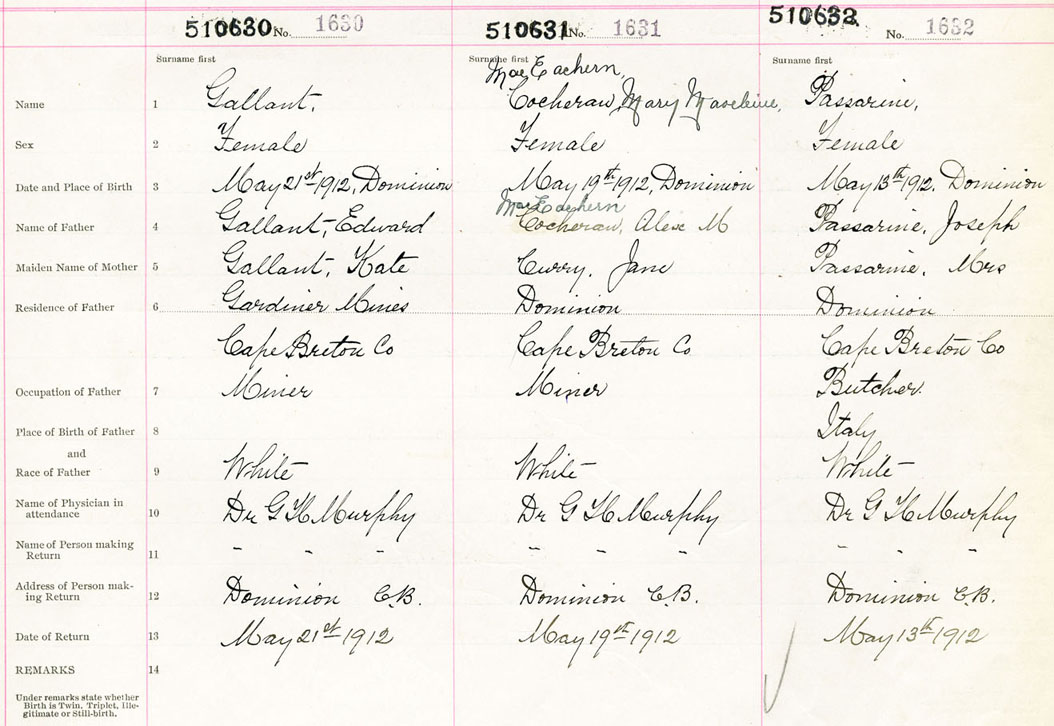 510630 No. 1630 510631 No. 1631 510632 No. 1632
Surname first Surname first Surname first
MacEachern,
Name 1 Gallant, Cocheran, Mary Maseline, Passarine,
Sex 2 Female Female Female
Date and Place of Birth 3 May 21st 1912, Dominion May 19th 1912, Dominion May 13th 1912. Dominion
MacEachern
Name of Father 4 Gallant, Edward Cocheran, Alex M Passarine, Joseph
Maiden Name of Mother 5 Gallant, Kate Curry, Jane Passarine, Mrs
Residence of Father 6 Gardiner Mines Dominion Dominion
Cape Breton Co Cape Breton Co Cape Breton Co
Occupation of Father 7 Miner Miner Butcher.
Place of Birth of Father 8 Italy
and
Race of Father 9 White White White
Name of Physician in
attendance 10 Dr G H Murphy Dr G H Murphy Dr G H Murphy
Name of Person making
Return 11 " " " " " " " " "
Address of Person mak-
ing Return 12 Dominion C.B. Dominion C.B. Dominion C.B.
Date of Return 13 May 21st 1912 May 19th 1912 May 13th 1912
REMARKS 14
Under remarks state whether
Birth is Twin, Triplet, Ille-
gitimate or Still-birth.